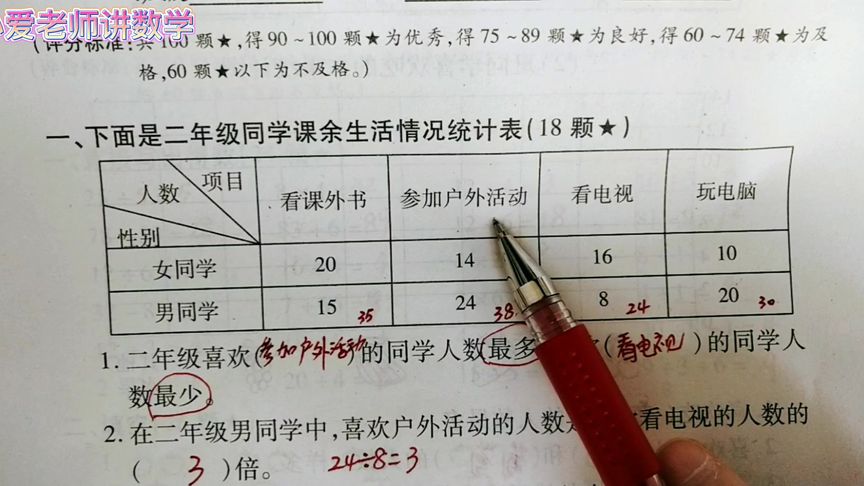 爱老师讲数学
(评分标准:共100颗★,得90～100颗★为优秀,得75～89颗★为良好,得60～74颗★为及
格,60颗★以下为不及格。)
一、下面是二年级同学课余生活情况统计表(18颗★)
人数 项目 性别 看课外书 参加户外活动 看电视 玩电脑
女同学 20 14 16 10
男同学 15 35 24 38 8 24 20 30
1.二年级喜欢(参加户外活动)的同学人数最多 (看电视)的同学人
数最少。
2.在二年级男同学中,喜欢户外活动的人数 看电视的人数的
(3)倍。 24÷8=3